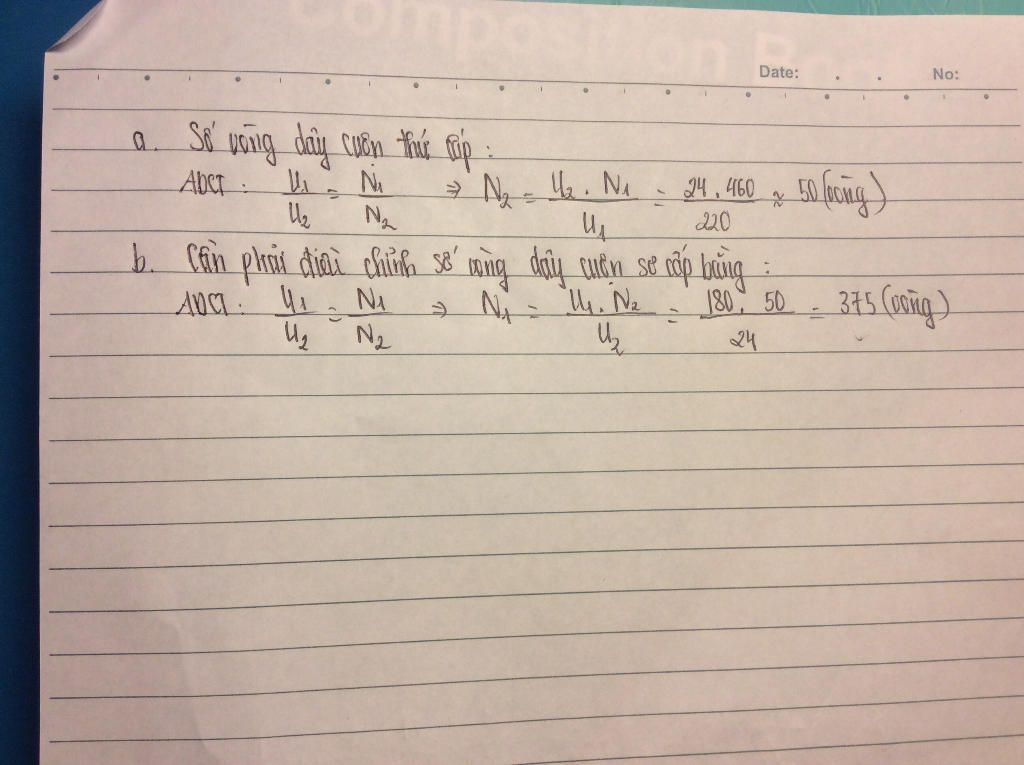 Composition Book
Date: No:
a. Số vòng dây cuộn thứ cấp :
ADCT : U1/U2 = N1/N2 => N2 = U2 . N1/U1 = 24 . 460/220 ≈ 50 (vòng)
b. Cần phải điều chỉnh số vòng dây cuộn sơ cấp bằng :
ADCT : U1/U2 = N1/N2 => N1 = U1 . N2/U2 = 180 . 50/24 = 375 (vòng)